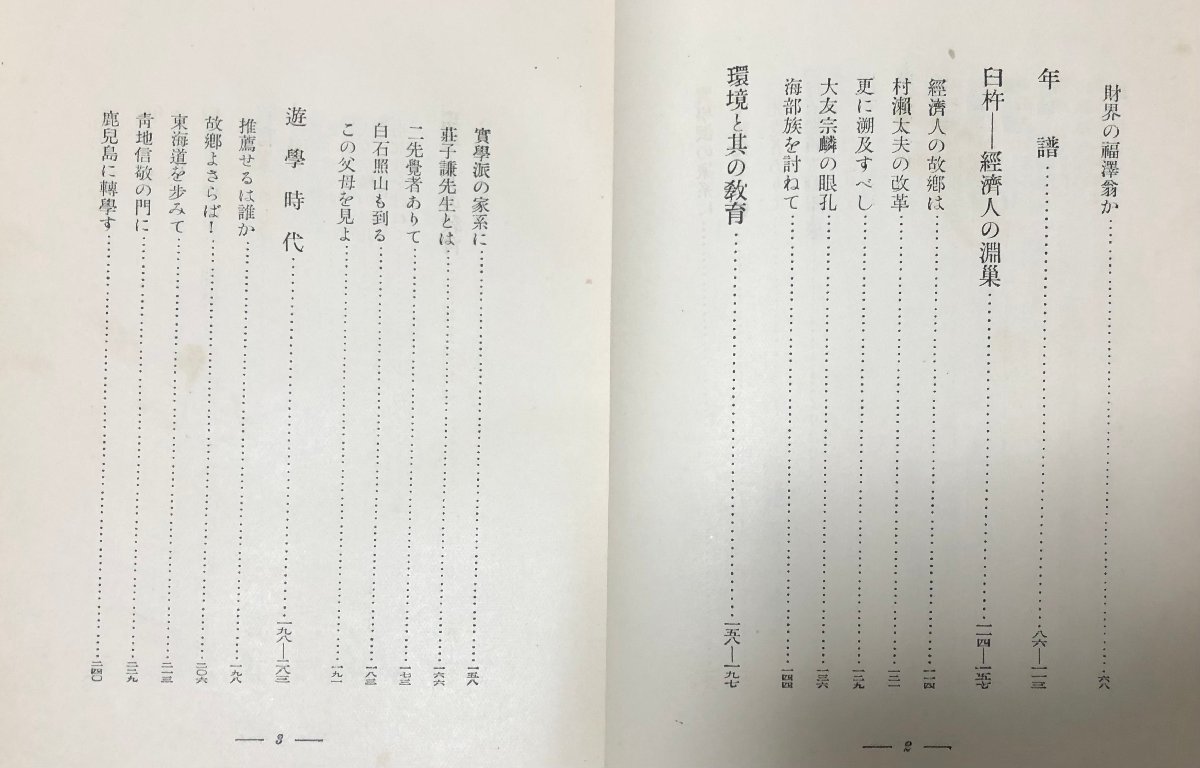 財界の福澤翁か……六八
年譜……八六―一一三
臼杵―經濟人の淵巢……一一四―一五七
經濟人の故鄕は……一一四
村瀨太夫の改革……一二一
更に溯及すべし……一二九
大友宗麟の眼孔……一三六
海部族を討ねて……一四四
環境と其の敎育……一五八―一九七
― 2 ―
實學派の家系に……一五八
莊子謙先生とは……一六六
二先覺者ありて……一七三
白石照山も到る……一八三
この父母を見よ……一九一
遊學時代……一九八―二八三
推薦せるは誰か……一九八
故鄕よさらば!……二〇六
東海道を步みて……二一三
靑地信敬の門に……二二九
鹿兒島に轉學す……二四〇
― 3 ―